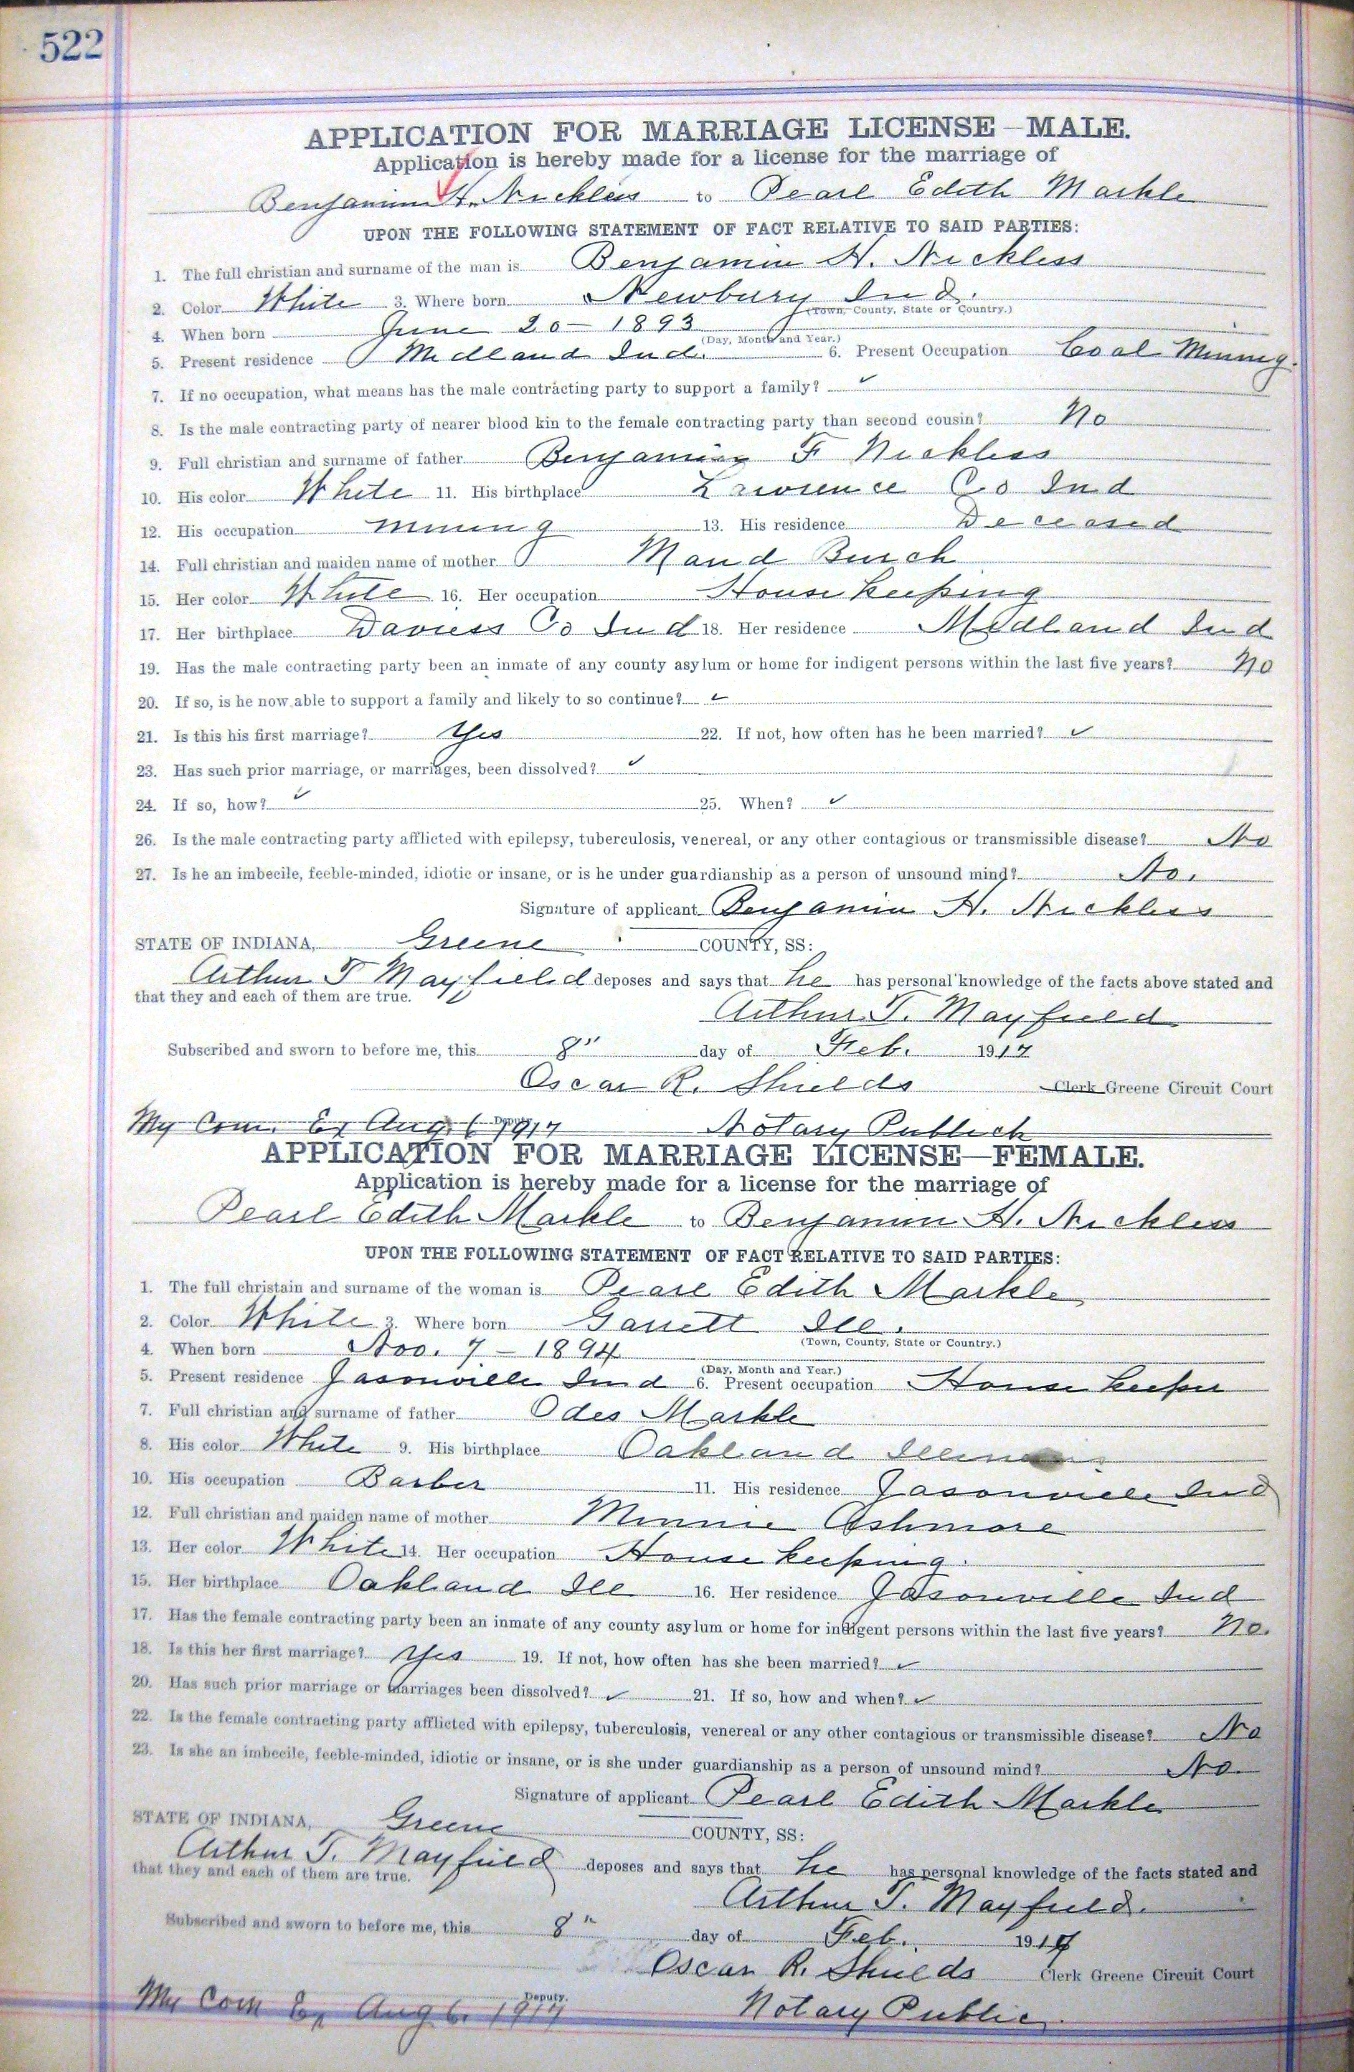 522
APPLICATION FOR MARRIAGE LICENSE—MALE.
Application is hereby made for a license for the marriage of
Benjamin H. Nickless to Pearl Edith Markle
UPON THE FOLLOWING STATEMENT OF FACT RELATIVE TO SAID PARTIES:
1. The full christian and surname of the man is Benjamin H. Nickless
2. Color White 3. Where born Newbury Ind.
(Town, County, State or Country.)
4. When born June 20 - 1893
(Day, Month and Year.)
5. Present residence Midland Ind. 6. Present Occupation Coal Mining.
7. If no occupation, what means has the male contracting party to support a family? ✓
8. Is the male contracting party of nearer blood kin to the female contracting party than second cousin? No
9. Full christian and surname of father Benjamin F Nickless
10. His color White 11. His birthplace Lawrence Co Ind
12. His occupation Mining 13. His residence Deceased
14. Full christian and maiden name of mother Maud Burch
15. Her color White 16. Her occupation House keeping
17. Her birthplace Daviess Co Ind 18. Her residence Midland Ind
19. Has the male contracting party been an inmate of any county asylum or home for indigent persons within the last five years? No
20. If so, is he now able to support a family and likely to so continue? ✓
21. Is this his first marriage? Yes 22. If not, how often has he been married? ✓
23. Has such prior marriage, or marriages, been dissolved? ✓
24. If so, how? ✓ 25. When? ✓
26. Is the male contracting party afflicted with epilepsy, tuberculosis, venereal, or any other contagious or transmissible disease? No
27. Is he an imbecile, feeble-minded, idiotic or insane, or is he under guardianship as a person of unsound mind? No.
Signature of applicant Benjamin H. Nickless
STATE OF INDIANA, Greene COUNTY, SS:
Arthur T Mayfield deposes and says that he has personal knowledge of the facts above stated and
that they and each of them are true.
Arthur T. Mayfield
Subscribed and sworn to before me, this 8" day of Feb. 1917
Oscar R. Shields Clerk Greene Circuit Court
My Com. Ex Aug. 6 1917 Deputy. Notary Publich
APPLICATION FOR MARRIAGE LICENSE—FEMALE.
Application is hereby made for a license for the marriage of
Pearl Edith Markle to Benjamin H. Nickless
UPON THE FOLLOWING STATEMENT OF FACT RELATIVE TO SAID PARTIES:
1. The full christain and surname of the woman is Pearl Edith Markle
2. Color White 3. Where born Garrett Ill.
(Town, County, State or Country.)
4. When born Nov. 7 - 1894
(Day, Month and Year.)
5. Present residence Jasonville Ind 6. Present occupation House keeper
7. Full christian and surname of father Odes Markle
8. His color White 9. His birthplace Oakland Illinois
10. His occupation Barber 11. His residence Jasonville Ind
12. Full christian and maiden name of mother Minnie Ashmore
13. Her color White 14. Her occupation House keeping.
15. Her birthplace Oakland Ill 16. Her residence Jasonville Ind
17. Has the female contracting party been an inmate of any county asylum or home for indigent persons within the last five years? No.
18. Is this her first marriage? Yes 19. If not, how often has she been married? ✓
20. Has such prior marriage or marriages been dissolved? ✓ 21. If so, how and when? ✓
22. Is the female contracting party afflicted with epilepsy, tuberculosis, venereal or any other contagious or transmissible disease? No
23. Is she an imbecile, feeble-minded, idiotic or insane, or is she under guardianship as a person of unsound mind? No.
Signature of applicant Pearl Edith Markle
STATE OF INDIANA, Greene COUNTY, SS:
Arthur T. Mayfield deposes and says that he has personal knowledge of the facts stated and
that they and each of them are true.
Arthur T. Mayfield.
Subscribed and sworn to before me, this 8" day of Feb. 1917
Oscar R. Shields Clerk Greene Circuit Court
My Com Ex Aug 6. 1917 Deputy. Notary Public.